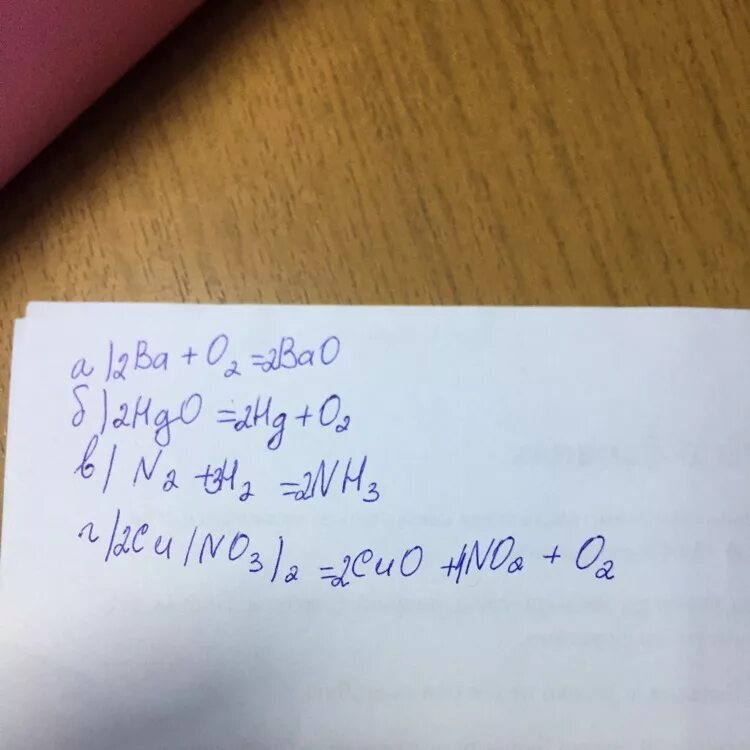 а) 2Ba + O₂ = 2BaO
б) 2HgO = 2Hg + O₂
в) N₂ + 3H₂ = 2NH₃
г) 2Cu(NO₃)₂ = 2CuO + 4NO₂ + O₂